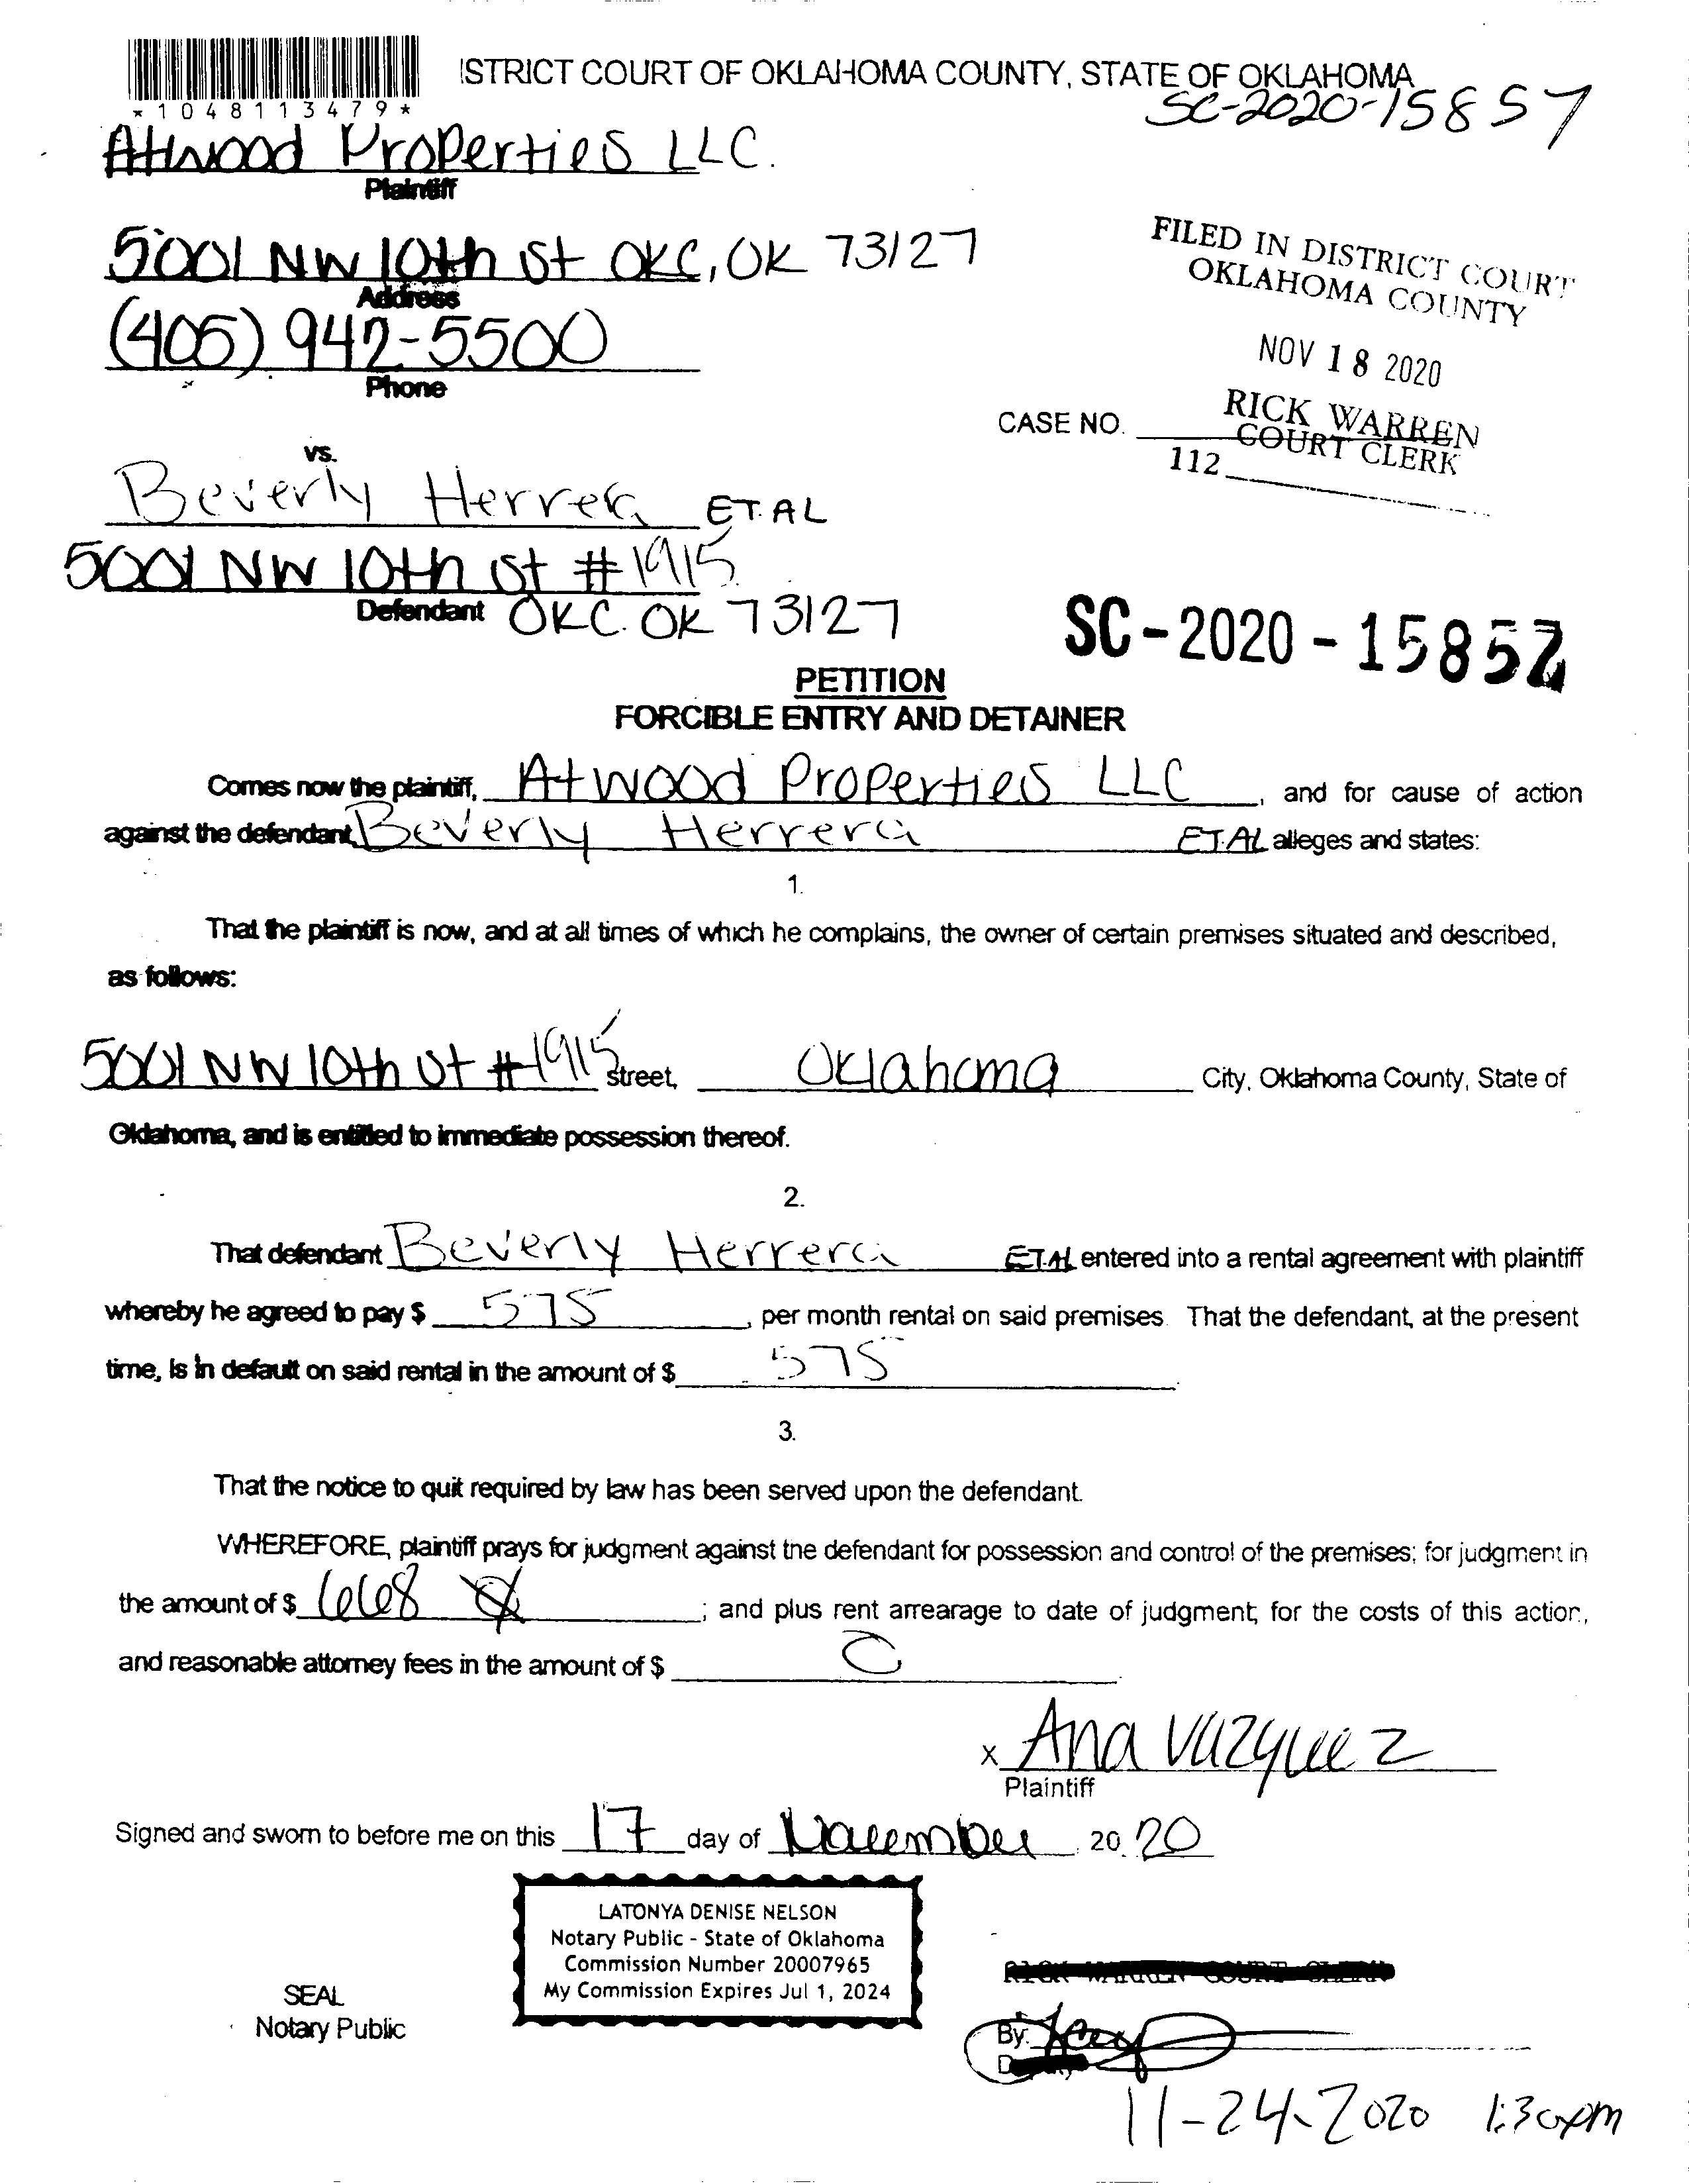 ISTRICT COURT OF OKLAHOMA COUNTY, STATE OF OKLAHOMA
*1048113479*
SC-2020-15857
Atwood Properties LLC.
Plaintiff
5001 NW 10th St OKC, OK 73127
Address
(405) 942-5500
Phone
FILED IN DISTRICT COURT
OKLAHOMA COUNTY
NOV 18 2020
RICK WARREN
COURT CLERK
CASE NO.
112
vs.
Beverly Herrera ET.AL
5001 NW 10th St #1915
Defendant OKC. OK 73127
SC-2020-1585
PETITION
FORCIBLE ENTRY AND DETAINER
Comes now the plaintiff, Atwood Properties LLC, and for cause of action
against the defendant, Beverly Herrera ET.AL alleges and states:
1.
That the plaintiff is now, and at all times of which he complains, the owner of certain premises situated and described,
as follows:
5001 NW 10th St #1915 street, Oklahoma City, Oklahoma County, State of
Oklahoma, and is entitled to immediate possession thereof.
2.
That defendant Beverly Herrera ET.AL entered into a rental agreement with plaintiff
whereby he agreed to pay $ 575, per month rental on said premises. That the defendant, at the present
time, is in default on said rental in the amount of $ 575
3.
That the notice to quit required by law has been served upon the defendant.
WHEREFORE, plaintiff prays for judgment against the defendant for possession and control of the premises; for judgment in
the amount of $ 668; and plus rent arrearage to date of judgment; for the costs of this action,
and reasonable attorney fees in the amount of $ 0
x Ana Vazquez
Plaintiff
Signed and sworn to before me on this 17 day of November 20 20
LATONYA DENISE NELSON
Notary Public - State of Oklahoma
Commission Number 20007965
My Commission Expires Jul 1, 2024
SEAL
Notary Public
RICK WARREN COURT CLERK
By:
11-24-2020 1:30pm